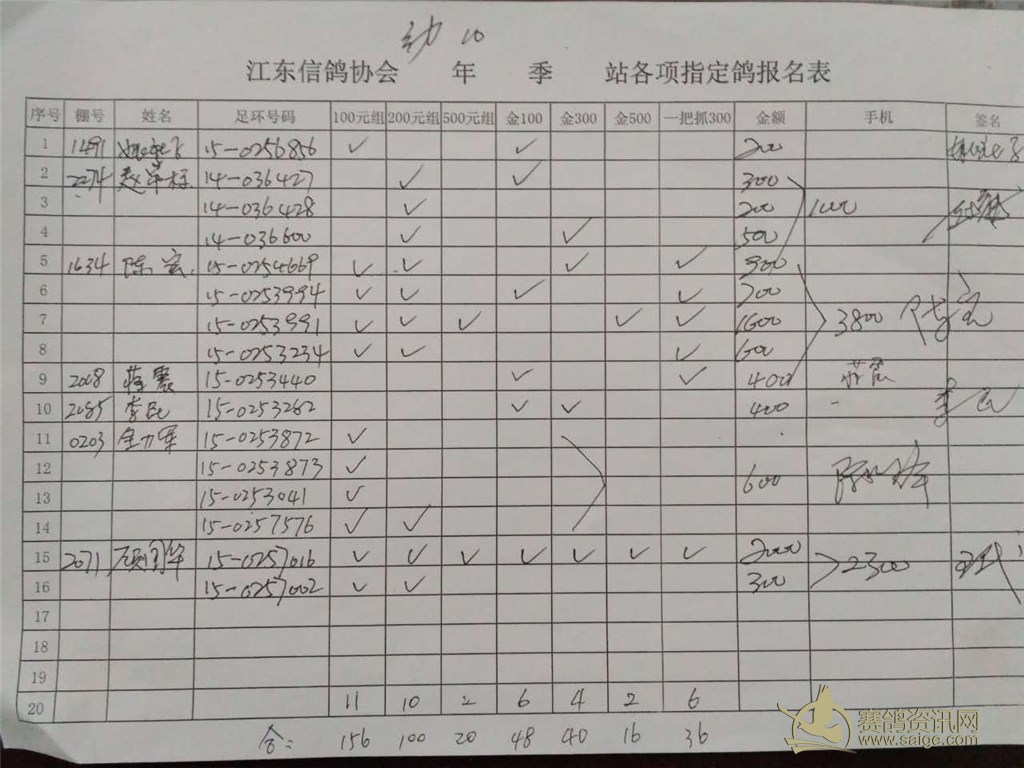 幼 10
江东信鸽协会 年 季 站各项指定鸽报名表
序号 棚号 姓名 足环号码 100元组 200元组 500元组 金100 金300 金500 一把抓300 金额 手机 签名
1 1491 15-0256856 ✓ ✓ 200
2 2274 14-036427 ✓ ✓ 300
3 14-036428 ✓ 200 1000
4 14-036600 ✓ ✓ 500
5 1634 陈宏 15-0254669 ✓ ✓ ✓ ✓ 900
6 15-0253994 ✓ ✓ ✓ ✓ 700
7 15-0253991 ✓ ✓ ✓ ✓ ✓ 1600 3800 陈宏
8 15-0253234 ✓ ✓ ✓ 600
9 2008 蒋震 15-0253440 ✓ ✓ 400
10 2085 李民 15-0253262 ✓ ✓ 400 李民
11 0203 15-0253872 ✓
12 15-0253873 ✓ 600
13 15-0253041 ✓
14 15-0257576 ✓ ✓
15 2071 15-0257016 ✓ ✓ ✓ ✓ ✓ ✓ ✓ 2000 2300
16 15-0257002 ✓ ✓ 300
17
18
19
20 11 10 2 6 4 2 6
合: 156 100 20 48 40 16 36
赛鸽资讯网
www.saige.com